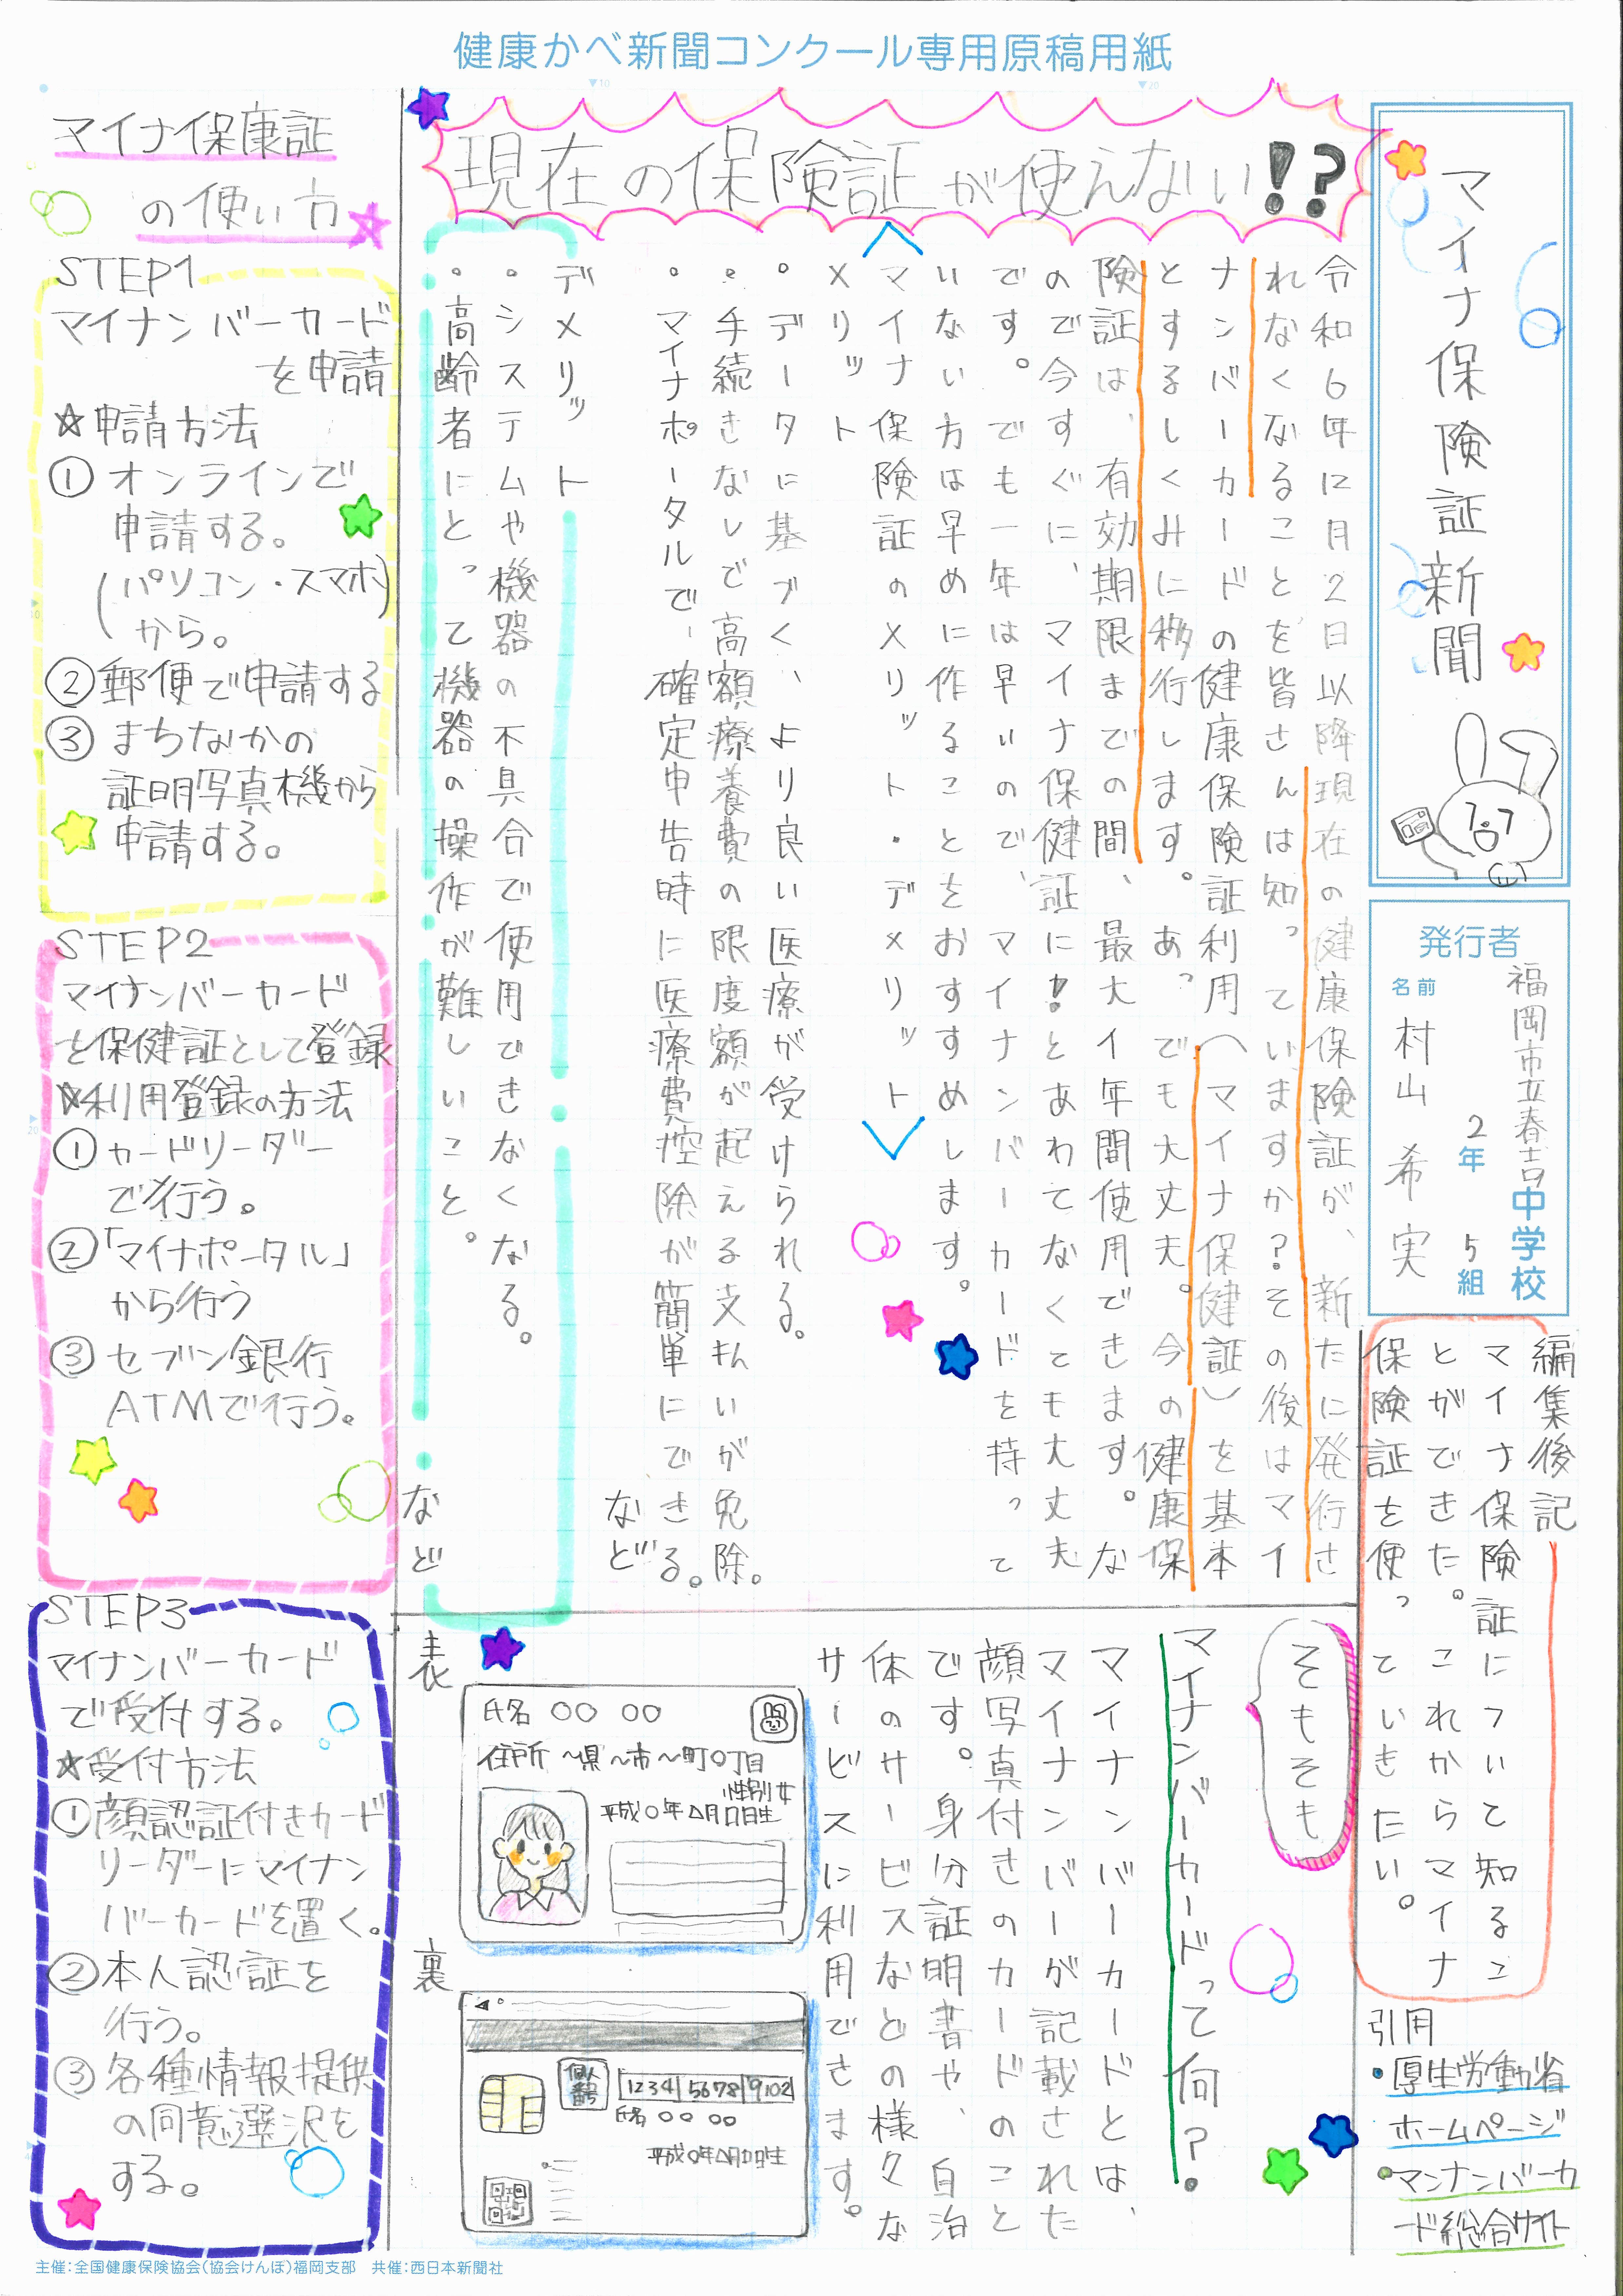 健康かべ新聞コンクール専用原稿用紙
マイナ保険証新聞
発行者
福岡市立春吉中学校
2年 5組
名前 村山 希実
現在の保険証が使えない!?
令和6年12月2日以降現在の健康保険証が、新たに発行さ
れなくなることを皆さんは知っていますか?その後はマイ
ナンバーカードの健康保険証利用(マイナ保健証)を基本
とするしくみに移行します。あっ でも大丈夫。今の健康保
険証は、有効期限までの間、最大1年間使用できます。な
ので今すぐに、マイナ保健証に!とあわてなくても大丈夫
です。でも一年は早いので、マイナンバーカードを持って
いない方は早めに作ることをおすすめします。
<マイナ保険証のメリット・デメリット>
メリット
。データに基づく、より良い医療が受けられる。
。手続きなしで高額療養費の限度額が起える支払いが免除。
。マイナポータルで、確定申告時に医療費控除が簡単にできる。
など
デメリット
。システムや機器の不具合で使用できなくなる。
。高齢者にとって機器の操作が難しいこと。
など
マイナ保康証
の使い方
STEP1
マイナンバーカード
を申請
☆申請方法
① オンラインで
申請する。
(パソコン・スマホ)
から。
②郵便で申請する
③ まちなかの
証明写真機から
申請する。
STEP2
マイナンバーカード
を保健証として登録
☆利用登録の方法
① カードリーダー
で行う。
②「マイナポータル」
から行う
③ セブン銀行
ATMで行う。
STEP3
マイナンバーカード
で受付する。
☆受付方法
①顔認証付きカード
リーダーにマイナン
バーカードを置く。
②本人認証を
行う。
③ 各種情報提供
の同意選沢を
する。
そもそも
マイナンバーカードって何?
マイナンバーカードとは、
マイナンバーが記載された
顔写真付きのカードのこと
です。身分証明書や、自治
体のサービスなどの様々な
サービスに利用できます。
表
氏名 〇〇 〇〇
住所 〜県〜市〜町〇丁目
性別 女
平成〇年△月□日生
裏
個人番号
1234 5678 9102
氏名 〇〇 〇〇
平成〇年△月□日生
編集後記
マイナ保険証について知るこ
とができた。これからマイナ
保険証を使っていきたい。
引用
・厚生労働省
ホームページ
・マンナンバーカ
ード総合サイト
主催:全国健康保険協会(協会けんぽ)福岡支部 共催:西日本新聞社